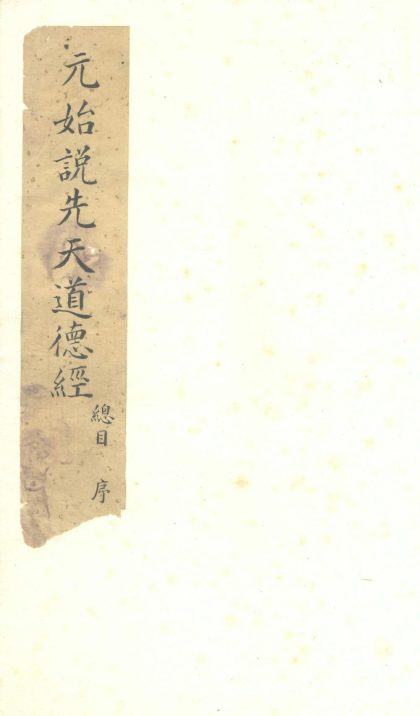 元始説先天道德經
總目 序